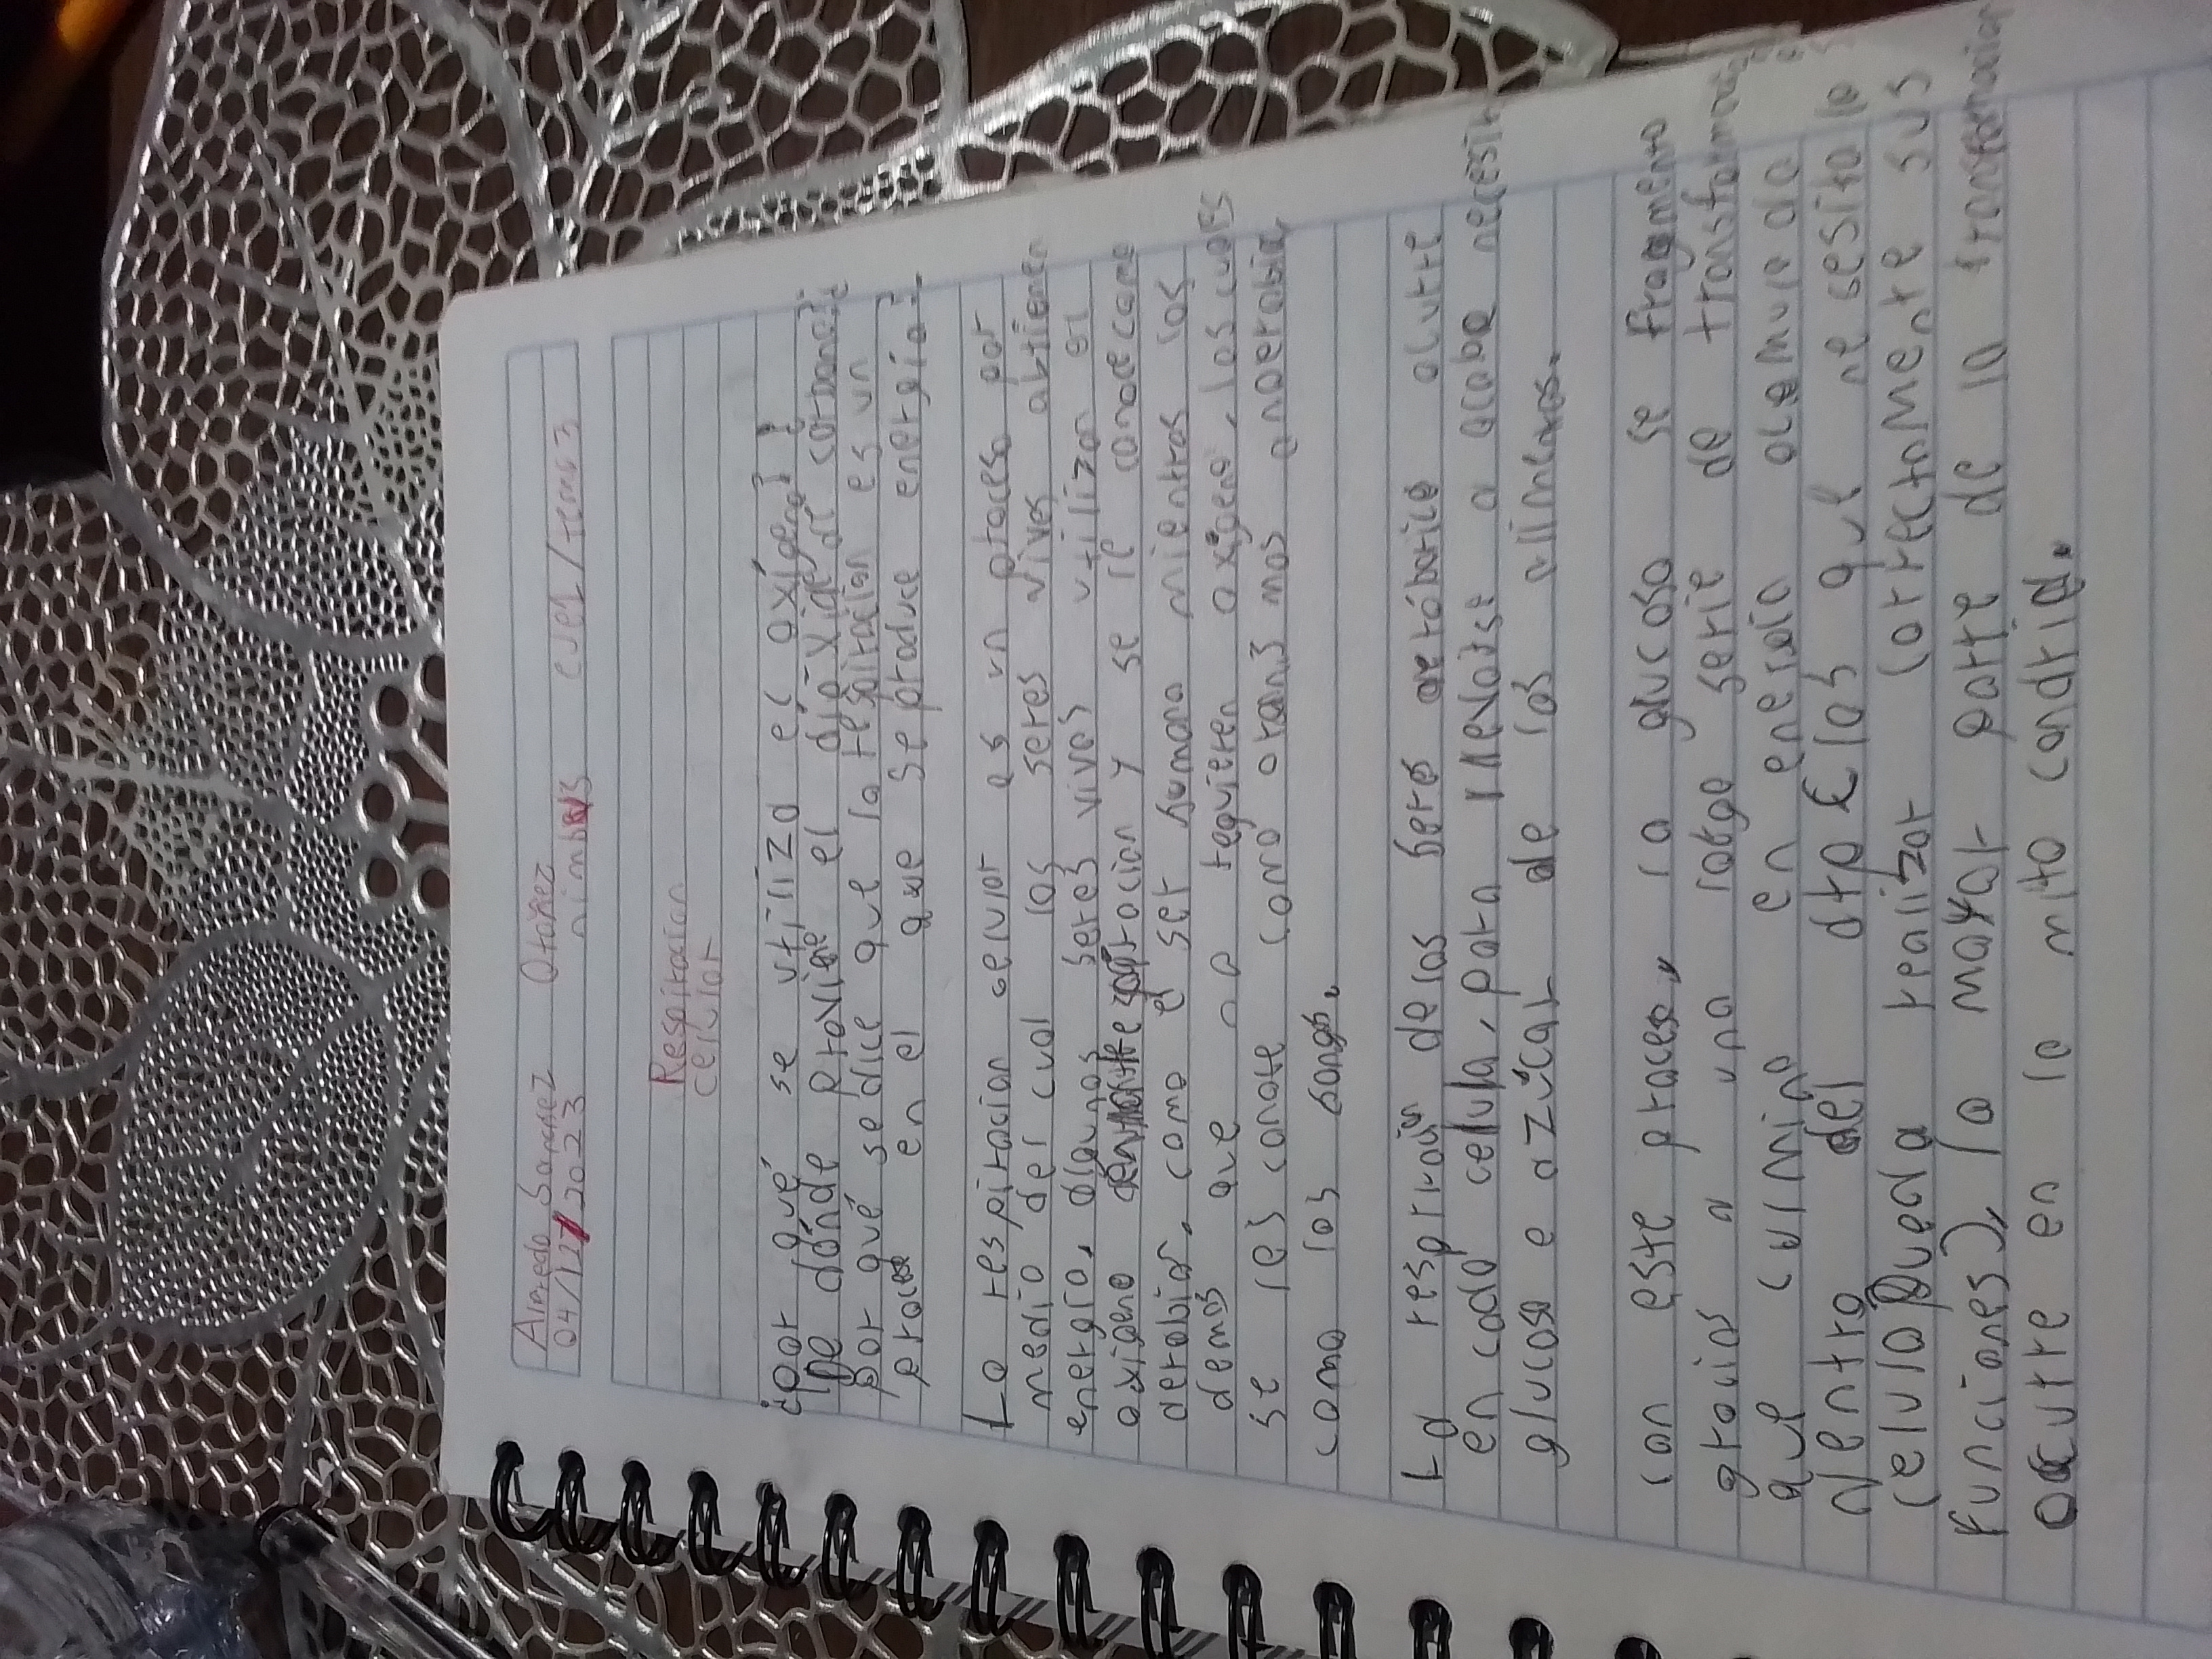 Alfredo Sanchez Otañez
04/12/2023 nimbus eve1/tema3
Respiracion
celular
¿por qué se utiliza el oxígeno? ¿
De dónde proviene el dióxido de carbono? ¿
por qué se dice que la respiracion es un
proceso en el que se produce energía?
La respiracion celular es un proceso por
medio del cual los seres vivos obtienen
energia, algunos seres vivos utilizan el
oxigeno respiracion y se le conoce como
aerobia, como el ser humano mientras los
demás que no requieren oxigeno, los cuales
se les conoce como organismos anaerobia,
como los hongos.
La respiración de los seres aeróbica ocurre
en cada celula, para llevarse a acabo necesita
glucosa o azúcar de los alimentos.
con este proceso, la glucosa se fragmenta
gracias a una larga serie de
que culmina en energía acumulada
dentro del atp (las que nesesita la
celula pueda realizar correctamente sus
funciones), la mayor parte de la transformacion
ocurre en la mito condria.